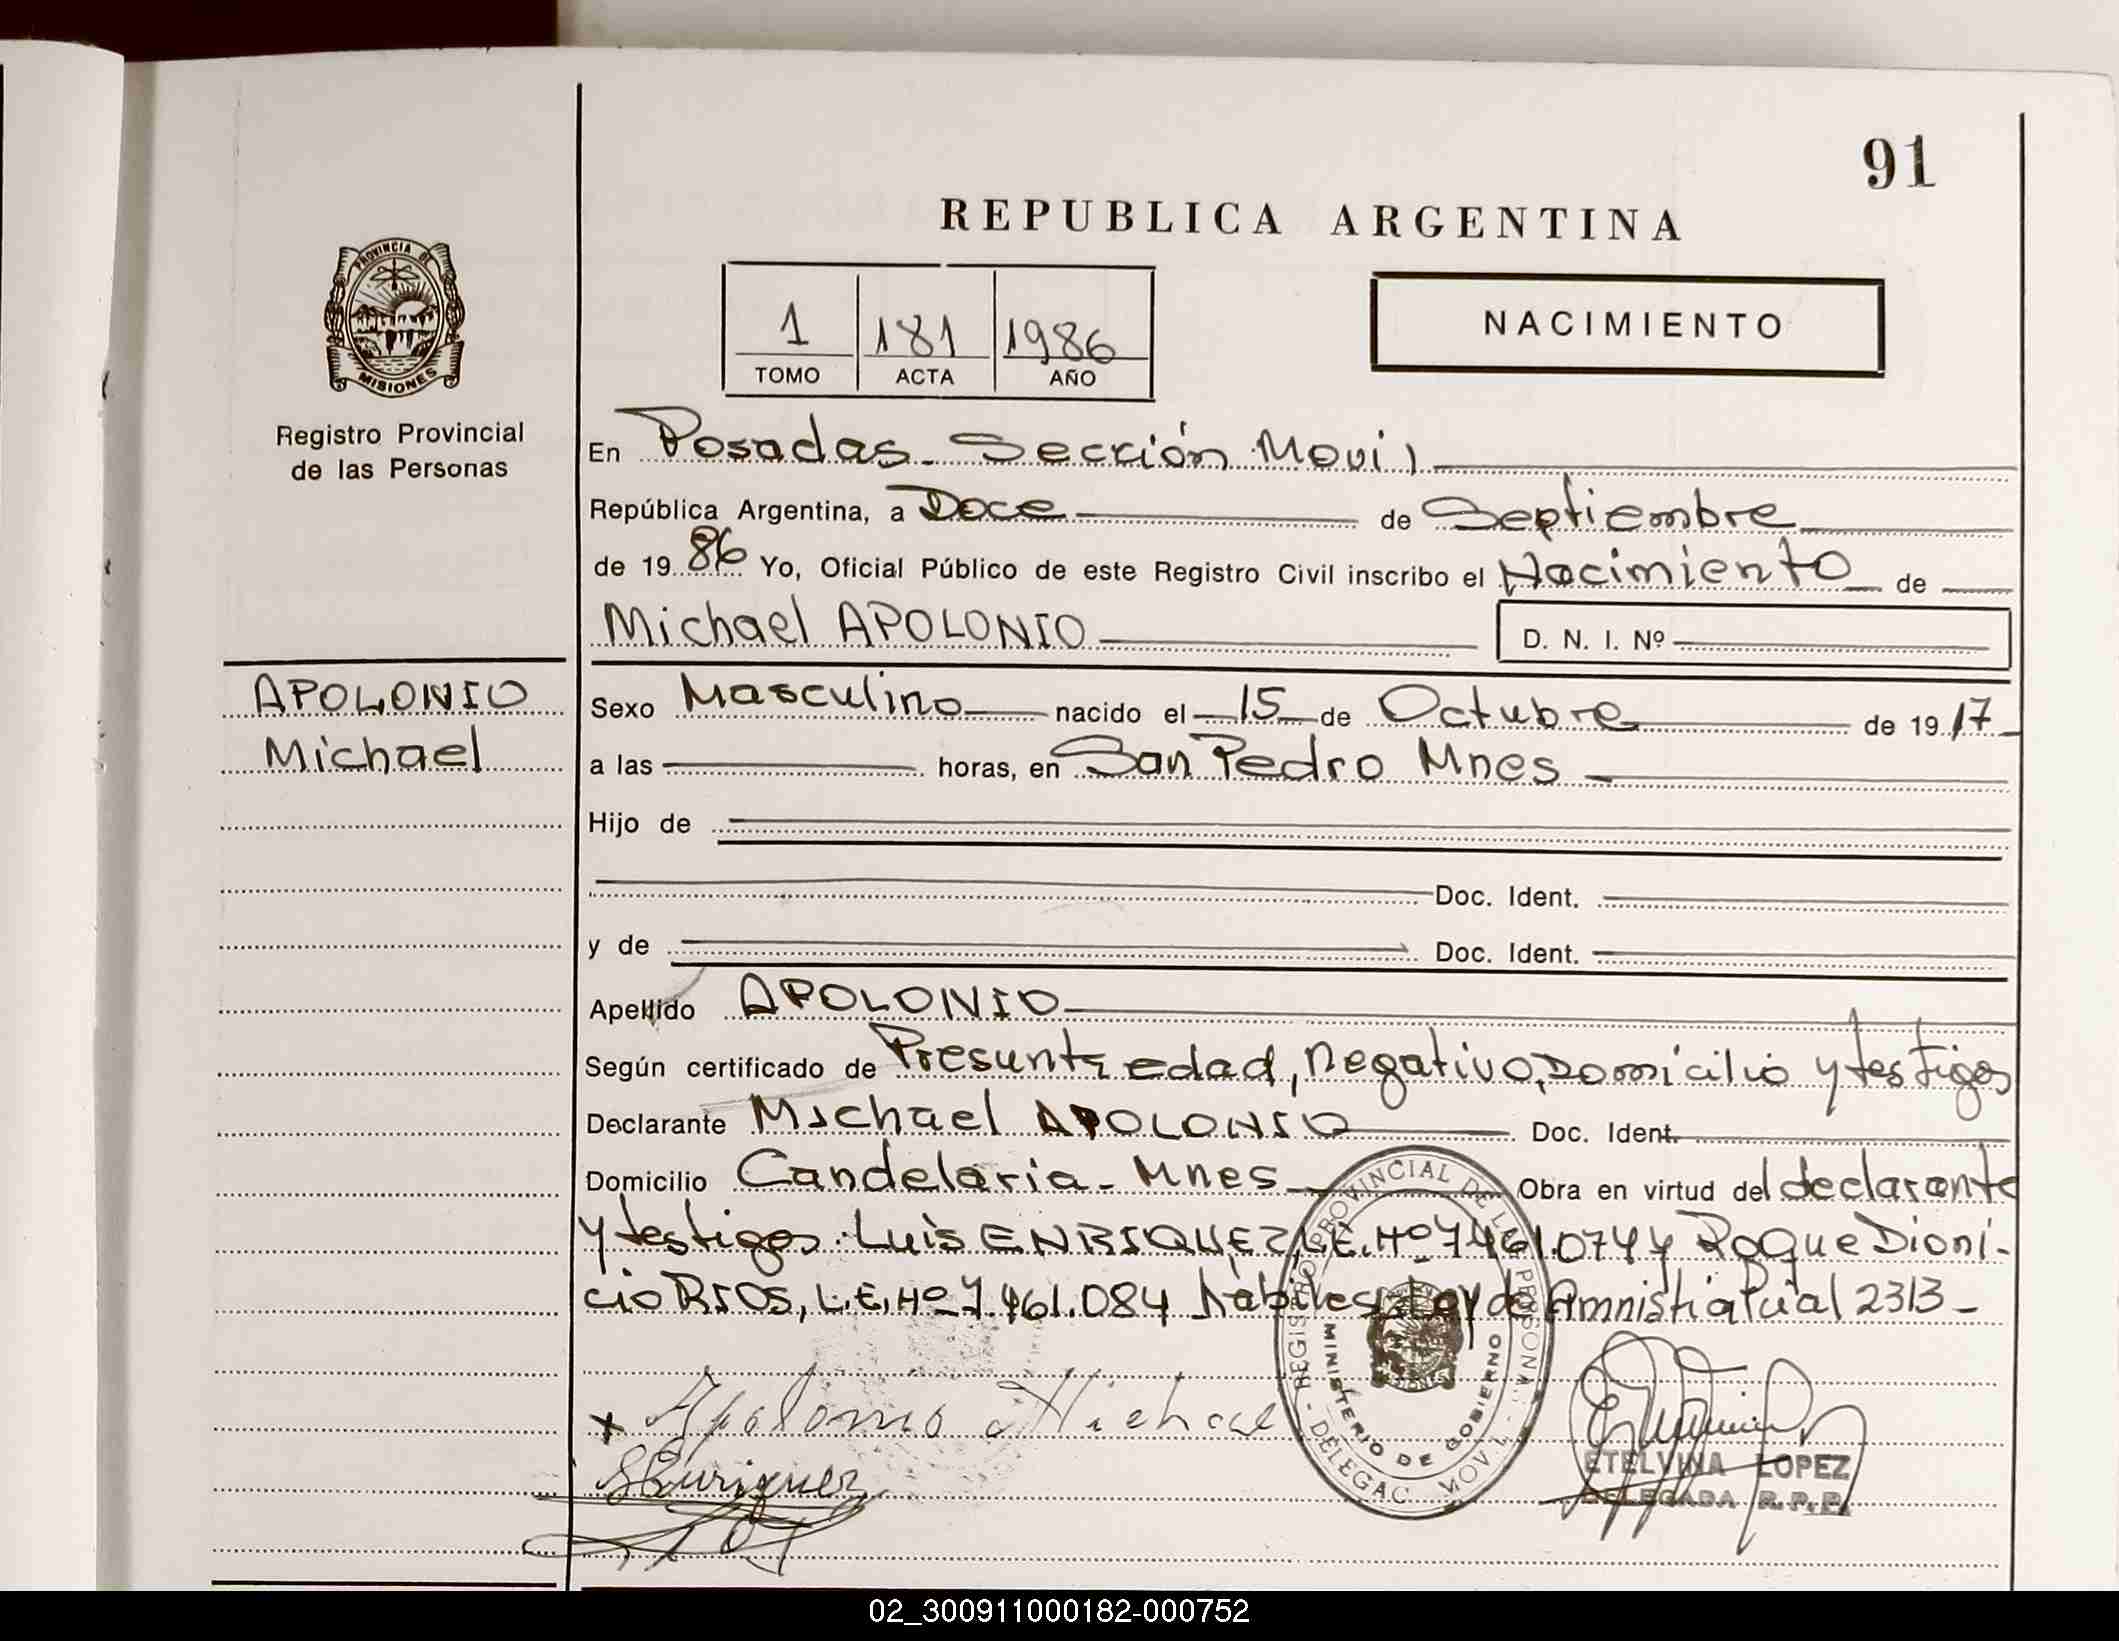 91
REPUBLICA ARGENTINA
PROVINCIA DE
MISIONES
Registro Provincial
de las Personas
1 181 1986
TOMO ACTA AÑO
NACIMIENTO
En Posadas - Sección Movil
República Argentina, a Doce de Septiembre
de 19 86 Yo, Oficial Público de este Registro Civil inscribo el Nacimiento de
Michael APOLONIO D. N. I. Nº
APOLONIO
Michael
Sexo Masculino nacido el 15 de Octubre de 19 17
a las horas, en San Pedro Mnes
Hijo de
Doc. Ident.
y de Doc. Ident.
Apellido APOLONIO
Según certificado de Presunta edad, negativo, Domicilio y testigos
Declarante Michael APOLONIO Doc. Ident.
Domicilio Candelaria - Mnes Obra en virtud del declarante
y testigos: Luis ENRIQUEZ, L.E. Nº 7461.074 y Roque Dioni-
cio RIOS, L.E. Nº 7.461.084 hábiles Ley de Amnistia Pcial 2313 -
REGISTRO PROVINCIAL DE LAS PERSONAS - DELEGAC. MOVIL -
MINISTERIO DE GOBIERNO
x Apolonio Michael
Enriquez
ETELVINA LOPEZ
DELEGADA R.P.P.
02_300911000182-000752